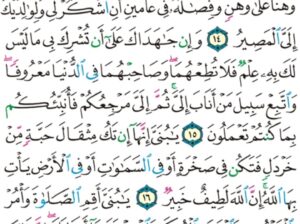 وَهْنًا عَلَىٰ وَهْنٍ وَفِصَٰلُهُۥ فِى عَامَيْنِ أَنِ ٱشْكُرْ لِى وَلِوَٰلِدَيْكَ
إِلَىَّ ٱلْمَصِيرُ ١٤ وَإِن جَٰهَدَاكَ عَلَىٰٓ أَن تُشْرِكَ بِى مَا لَيْسَ
لَكَ بِهِۦ عِلْمٌ فَلَا تُطِعْهُمَا ۖ وَصَاحِبْهُمَا فِى ٱلدُّنْيَا مَعْرُوفًا ۖ
وَٱتَّبِعْ سَبِيلَ مَنْ أَنَابَ إِلَىَّ ۚ ثُمَّ إِلَىَّ مَرْجِعُكُمْ فَأُنَبِّئُكُم
بِمَا كُنتُمْ تَعْمَلُونَ ١٥ يَٰبُنَىَّ إِنَّهَآ إِن تَكُ مِثْقَالَ حَبَّةٍ مِّنْ
خَرْدَلٍ فَتَكُن فِى صَخْرَةٍ أَوْ فِى ٱلسَّمَٰوَٰتِ أَوْ فِى ٱلْأَرْضِ يَأْتِ
بِهَا ٱللَّهُ ۚ إِنَّ ٱللَّهَ لَطِيفٌ خَبِيرٌ ١٦ يَٰبُنَىَّ أَقِمِ ٱلصَّلَوٰةَ وَأْمُرْ